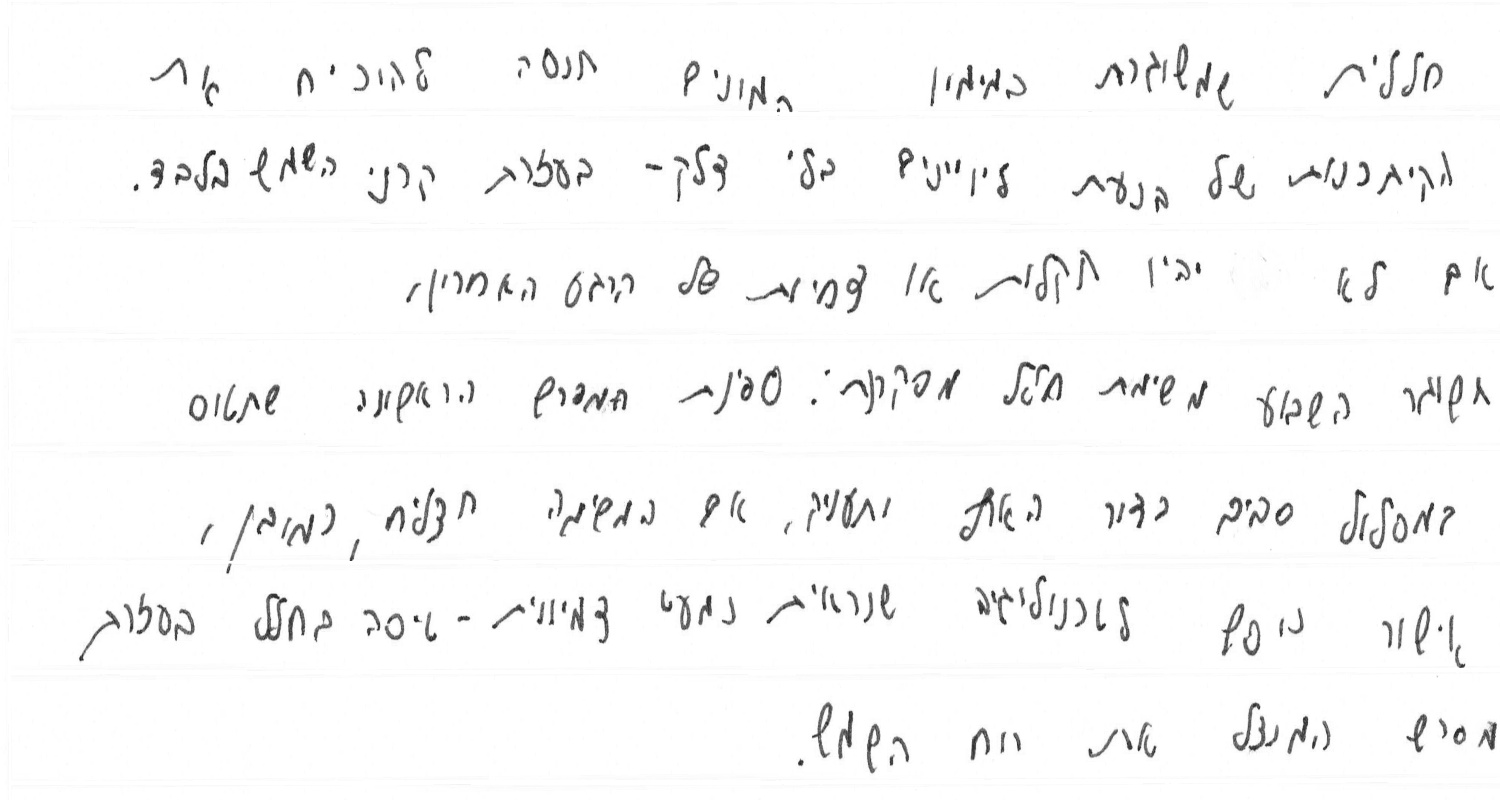 חללית שמשוגרת במימון המונים תנסה להוכיח את
היתכנות של הנעת לוויינים בלי דלק- בעזרת קרני השמש בלבד.
אם לא יהיו תקלות או דחיות של הרגע האחרון,
תשוגר השבוע משימת חלל מסקרנת: ספינת המפרש הראשונה שתטוס
במסלול סביב כדור הארץ ותעניק, אם המשימה תצליח, כמובן,
אישור נופש לטכנולוגיה שנראית כמעט דמיונית - טיסה בחלל בעזרת
מפרש המנצל את רוח השמש.